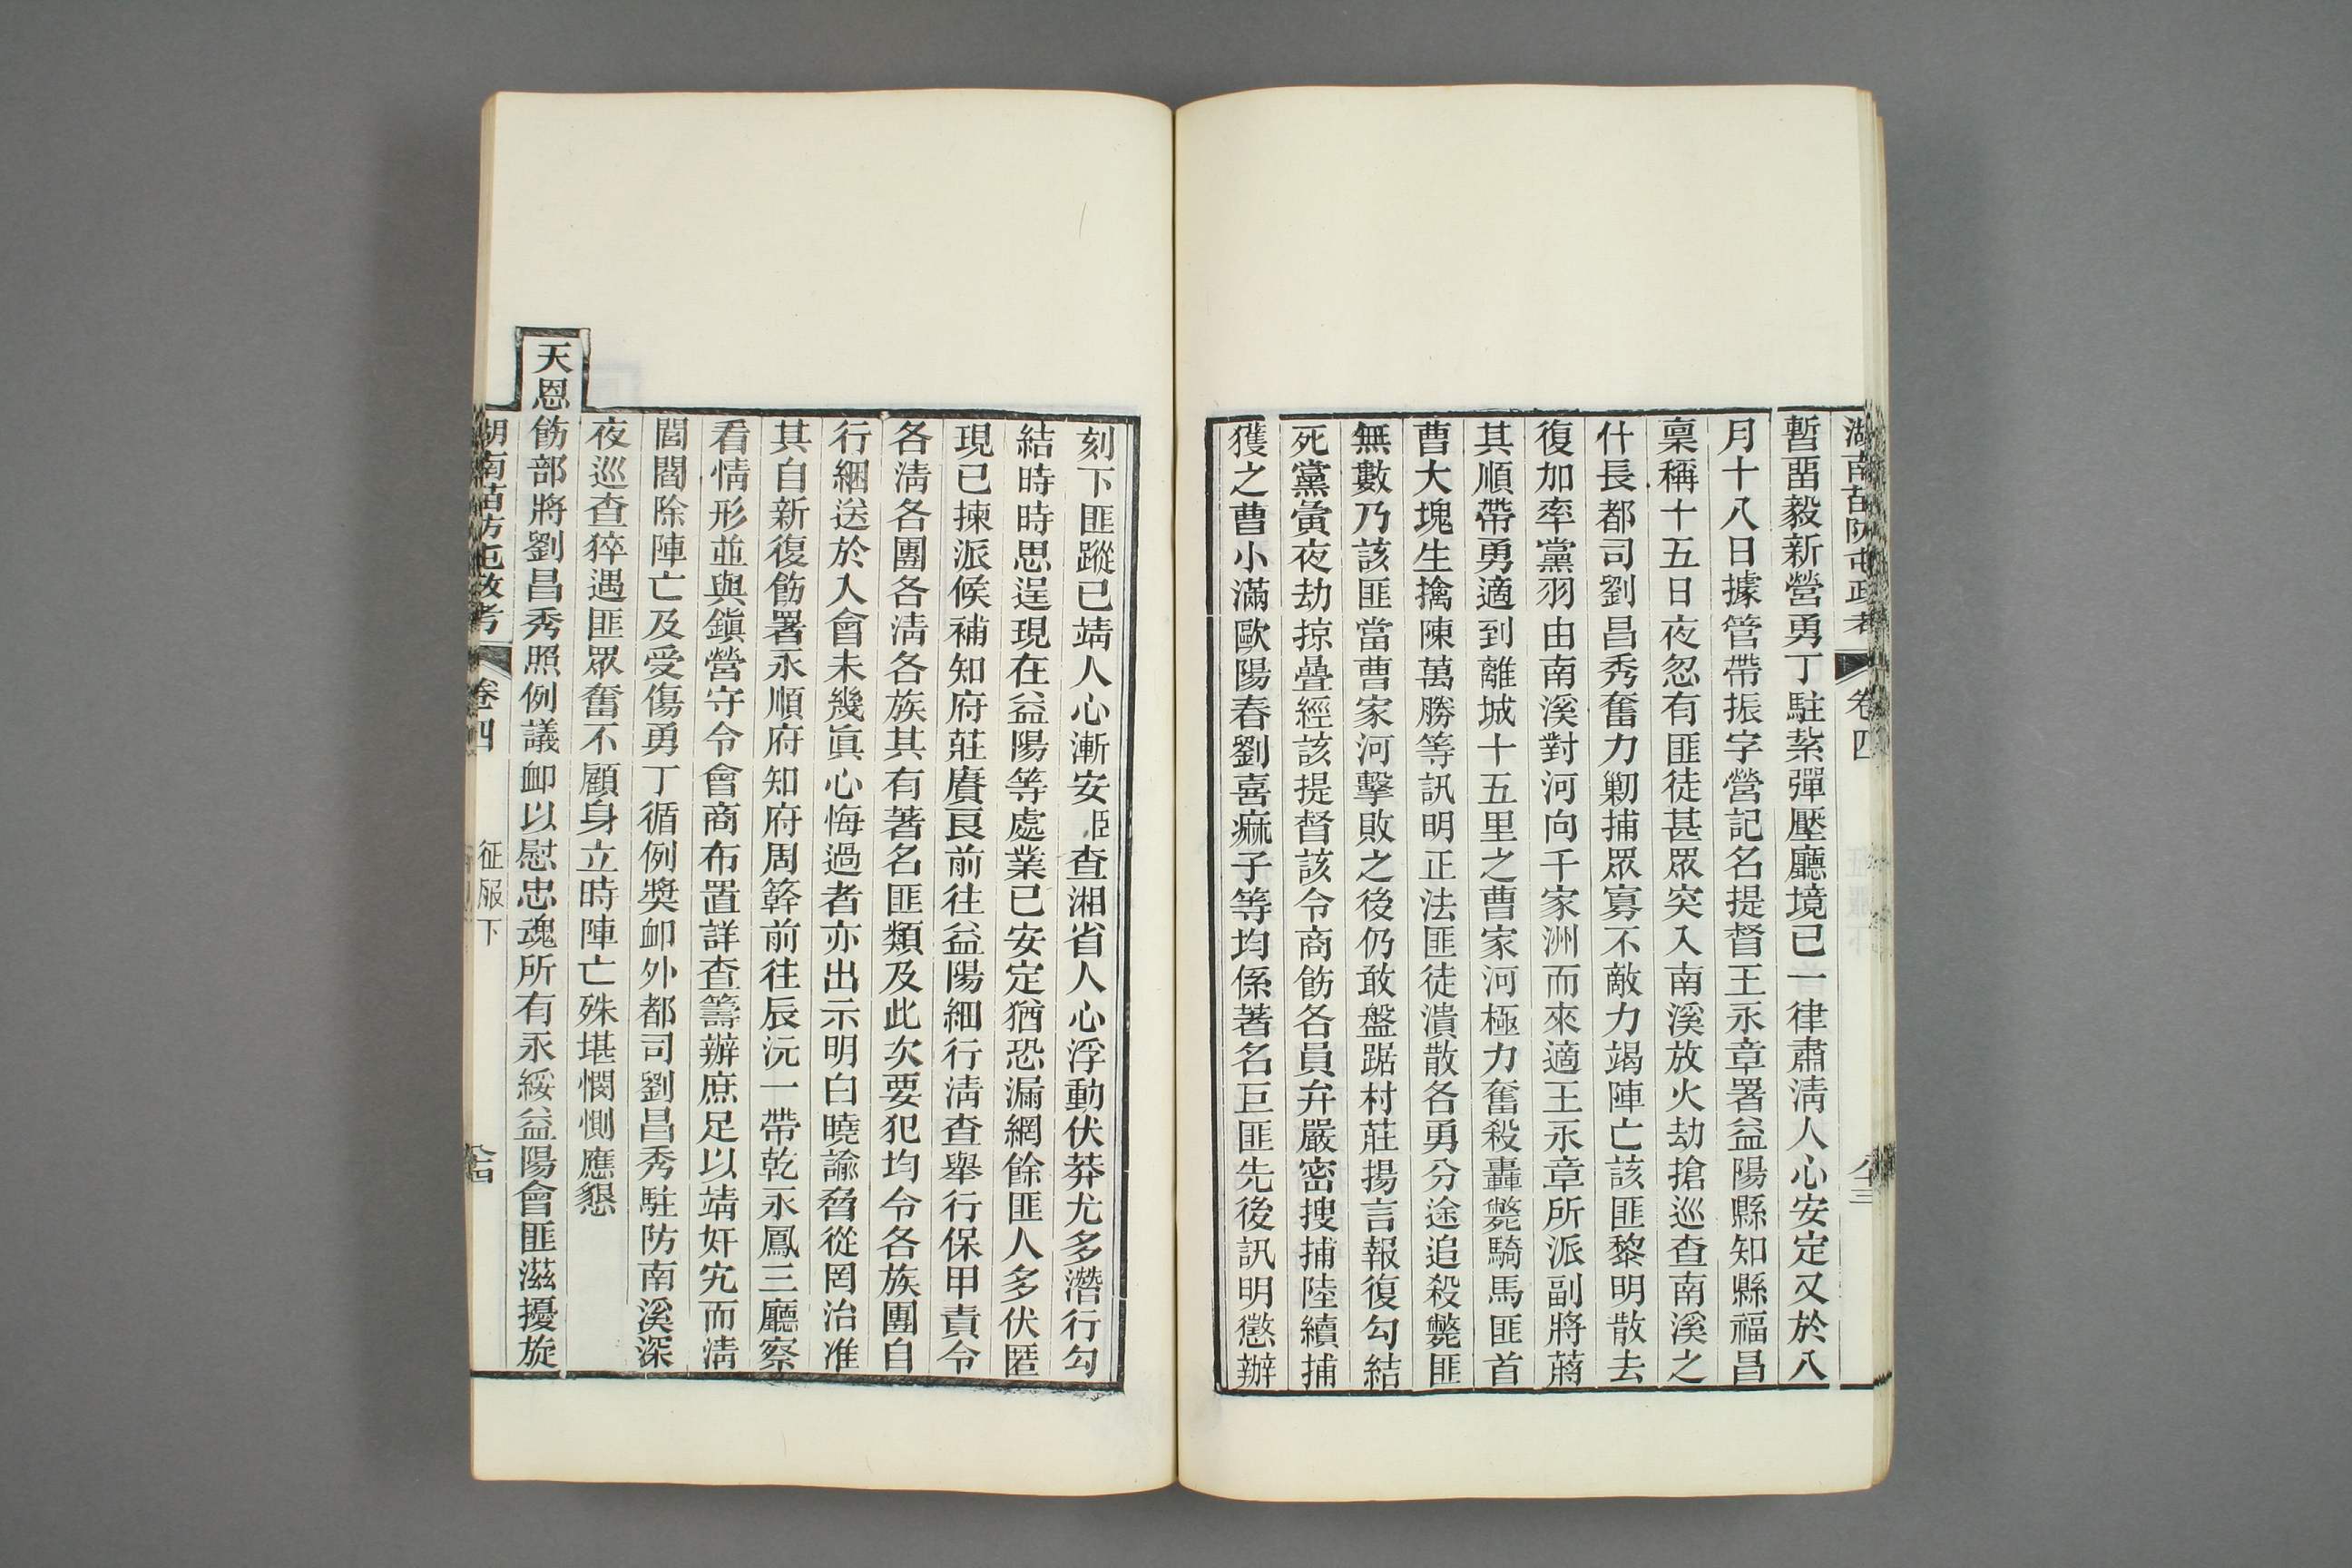 湖南苗防屯政考 卷四 八十三
暫畱毅新營勇丁駐紮彈壓廳境已一律肅淸人心安定又於八
月十八日據管帶振字營記名提督王永章署益陽縣知縣福昌
稟稱十五日夜忽有匪徒甚眾突入南溪放火劫搶巡查南溪之
什長都司劉昌秀奮力剿捕眾寡不敵力竭陣亡該匪黎明散去
復加率黨羽由南溪對河向千家洲而來適王永章所派副將蔣
其順帶勇適到離城十五里之曹家河極力奮殺轟斃騎馬匪首
曹大塊生擒陳萬勝等訊明正法匪徒潰散各勇分途追殺斃匪
無數乃該匪當曹家河擊敗之後仍敢盤踞村莊揚言報復勾結
死黨黃夜劫掠疊經該提督該令商飭各員弁嚴密搜捕陸續捕
獲之曹小滿歐陽春劉喜痲子等均係著名巨匪先後訊明懲辦
刻下匪蹤已靖人心漸安臣查湘省人心浮動伏莽尤多潛行勾
結時時思逞現在益陽等處業已安定猶恐漏網餘匪人多伏匿
現已揀派候補知府莊賡良前往益陽細行淸查舉行保甲責令
各淸各團各淸各族其有著名匪類及此次要犯均令各族團自
行綑送於入會未幾眞心悔過者亦出示明白曉諭脅從罔治准
其自新復飭署永順府知府周簳前往辰沅一帶乾永鳳三廳察
看情形並與鎭營守令會商布置詳查籌辦庶足以靖奸宄而淸
閭閻除陣亡及受傷勇丁循例獎卹外都司劉昌秀駐防南溪深
夜巡查猝遇匪眾奮不顧身立時陣亡殊堪憫惻應懇
天恩飭部將劉昌秀照例議卹以慰忠魂所有永綏益陽會匪滋擾旋
湖南苗防屯政考 卷四 征服下 八十四